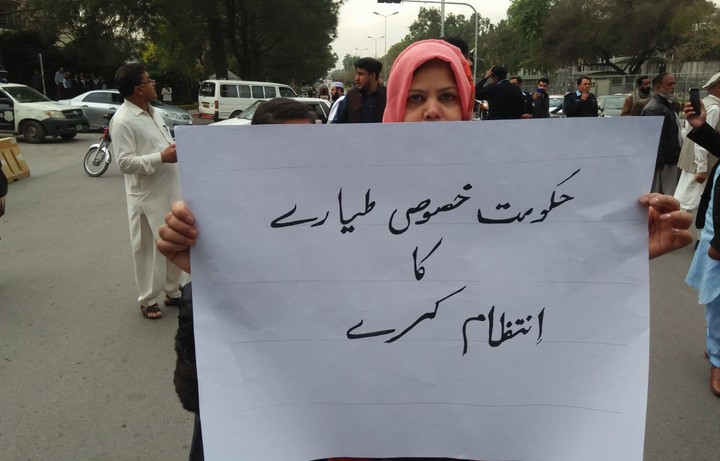 حکومت خصوصی طیارے
کا
اِنتظام کرے